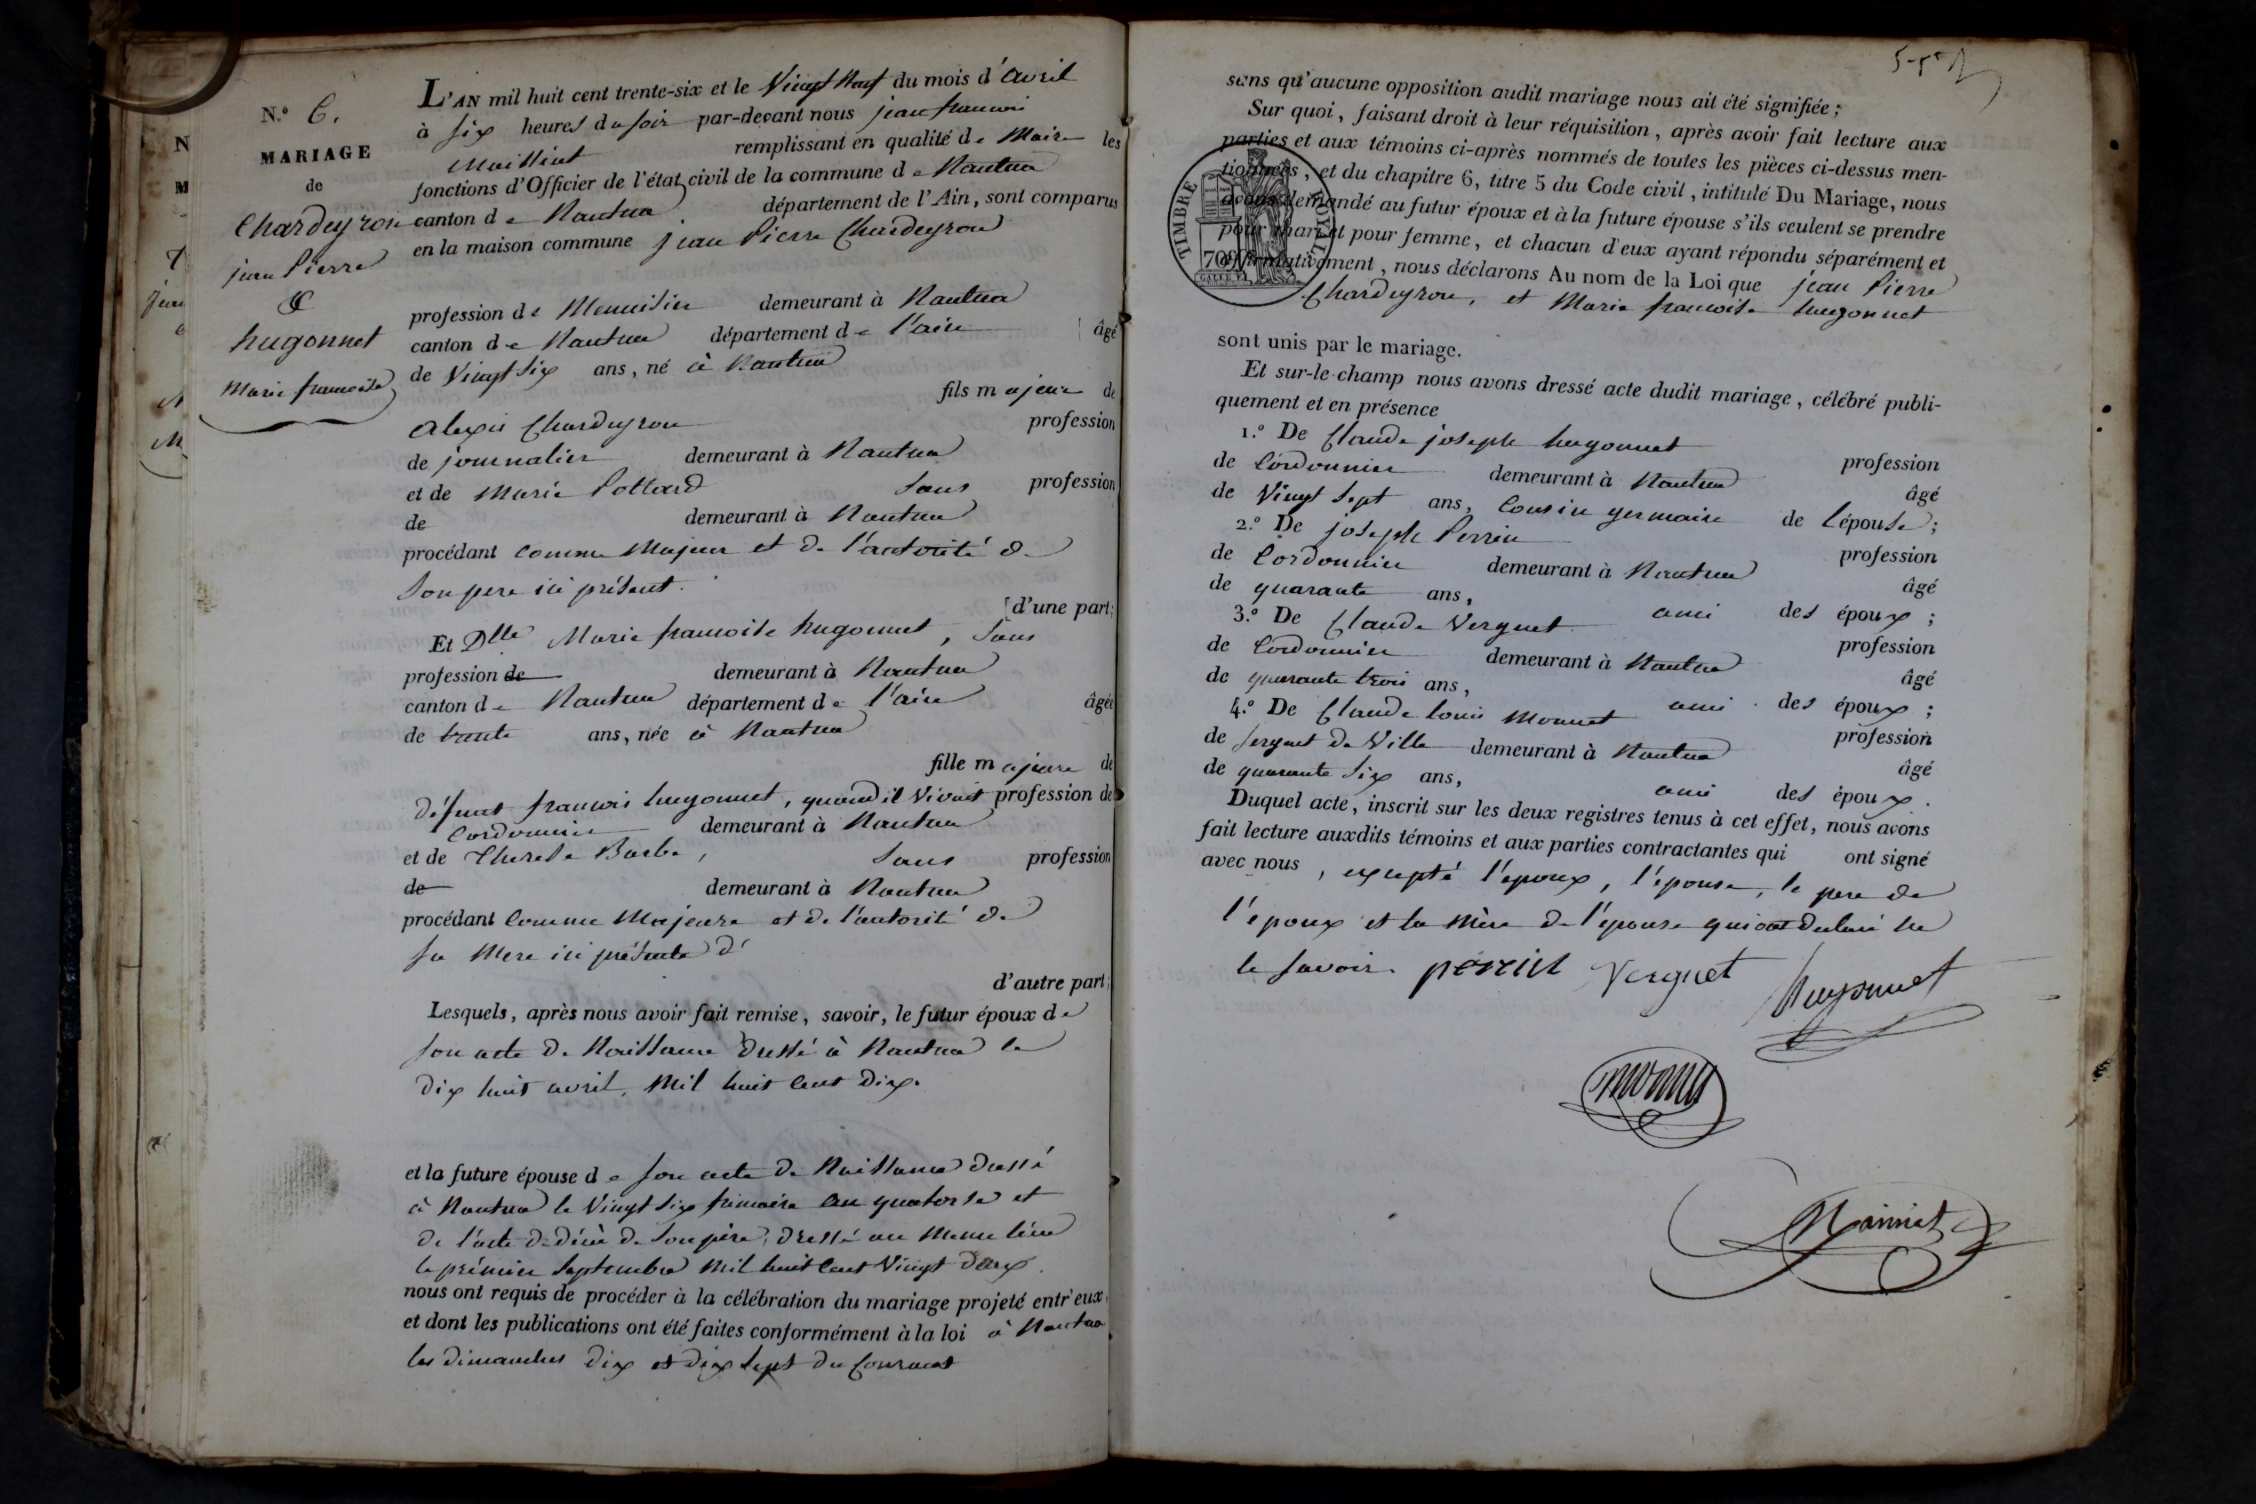 N.° 6.
MARIAGE
de
Chardeyron
jean Pierre
&
hugonnet
Marie francoise
L'AN mil huit cent trente-six et le Vingt Neuf du mois d'avril
à six heures du soir par-devant nous jean francois
remplissant en qualité de Maire les
fonctions d'Officier de l'état civil de la commune de Nantua
canton de Nantua département de l'Ain, sont comparus
en la maison commune jean Pierre Chardeyron
profession de Menuisier demeurant à Nantua
canton de Nantua département de l'ain âgé
de Vingt Six ans, né à Nantua
fils majeur de
alexis Chardeyron profession
de journalier demeurant à Nantua
et de Marie Pottard Sans profession
de demeurant à Nantua
procédant comme Majeur et de l'autorité de
Son pere ici présent.
d'une part;
Et Dlle Marie francoise hugonnet, Sans
profession de demeurant à Nantua
canton de Nantua département de l'ain âgée
de trente ans, née à Nantua
fille majeure de
défunt francois hugonnet, quand il Vivait profession de
Cordonnier demeurant à Nantua
et de Therese Barbe, Sans profession
de demeurant à Nantua
procédant Comme Majeure et de l'autorité de
sa Mere ici présente d'
d'autre part;
Lesquels, après nous avoir fait remise, savoir, le futur époux de
son acte de Naissance dressé à Nantua le
dix huit avril, Mil huit cent dix.
et la future épouse de son acte de Naissance dressé
à Nantua le Vingt Six frimaire an quatorze et
de l'acte de décès de Son père, dressé au Meme lieu
le prémier Septembre Mil huit cent Vingt deux.
nous ont requis de procéder à la célébration du mariage projeté entr'eux
et dont les publications ont été faites conformément à la loi à Nantua
les dimanches dix et dix sept du Courant
sans qu'aucune opposition audit mariage nous ait été signifiée;
Sur quoi, faisant droit à leur réquisition, après avoir fait lecture aux
parties et aux témoins ci-après nommés de toutes les pièces ci-dessus men-
tionnées, et du chapitre 6, titre 5 du Code civil, intitulé Du Mariage, nous
avons demandé au futur époux et à la future épouse s'ils veulent se prendre
pour mari et pour femme, et chacun d'eux ayant répondu séparément et
affirmativement, nous déclarons Au nom de la Loi que jean Pierre
Chardeyron, et Marie francoise hugonnet
TIMBRE ROYAL
sont unis par le mariage.
Et sur-le-champ nous avons dressé acte dudit mariage, célébré publi-
quement et en présence
1.° De Claude joseph hugonnet profession
de Cordonnier demeurant à Nantua âgé
de Vingt Sept ans, Cousin germain de l'épouse;
2.° De joseph Perrin profession
de Cordonnier demeurant à Nantua âgé
de quarante ans, ami des époux;
3.° De Claude Verguet profession
de Cordonnier demeurant à Nantua âgé
de quarante trois ans, ami des époux;
4.° De Claude Louis Monnet profession
de sergent de Ville demeurant à Nantua âgé
de quarante Six ans, ami des époux.
Duquel acte, inscrit sur les deux registres tenus à cet effet, nous avons
fait lecture auxdits témoins et aux parties contractantes qui ont signé
avec nous, excepté l'époux, l'épouse, le pere de
l'époux et la Mère de l'épouse qui ont declaré ne
le savoir. perrin Verguet hugonnet